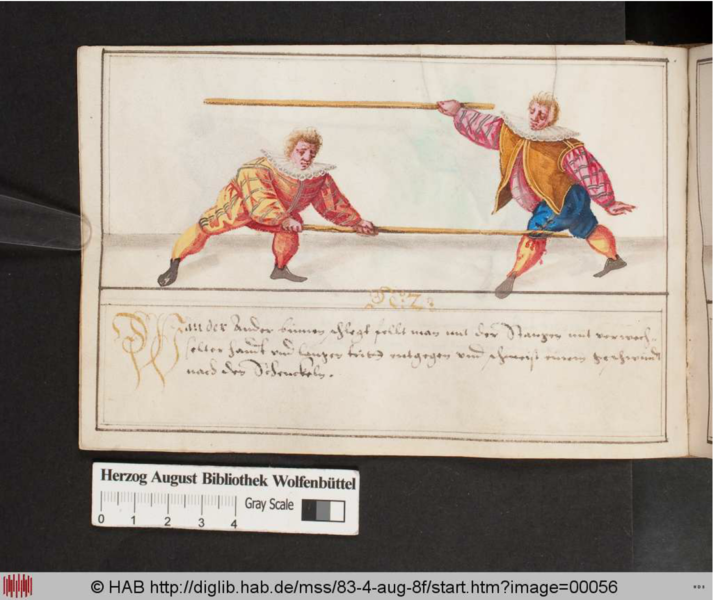 der Ander binnen schlegt fellt man mit der Stangen mit verwech-
selter handt vnd langer tritt entgegen vnd schmeist einem geschwind
nach den Schenckeln.
Herzog August Bibliothek Wolfenbüttel
Gray Scale
0 1 2 3 4
© HAB http://diglib.hab.de/mss/83-4-aug-8f/start.htm?image=00056